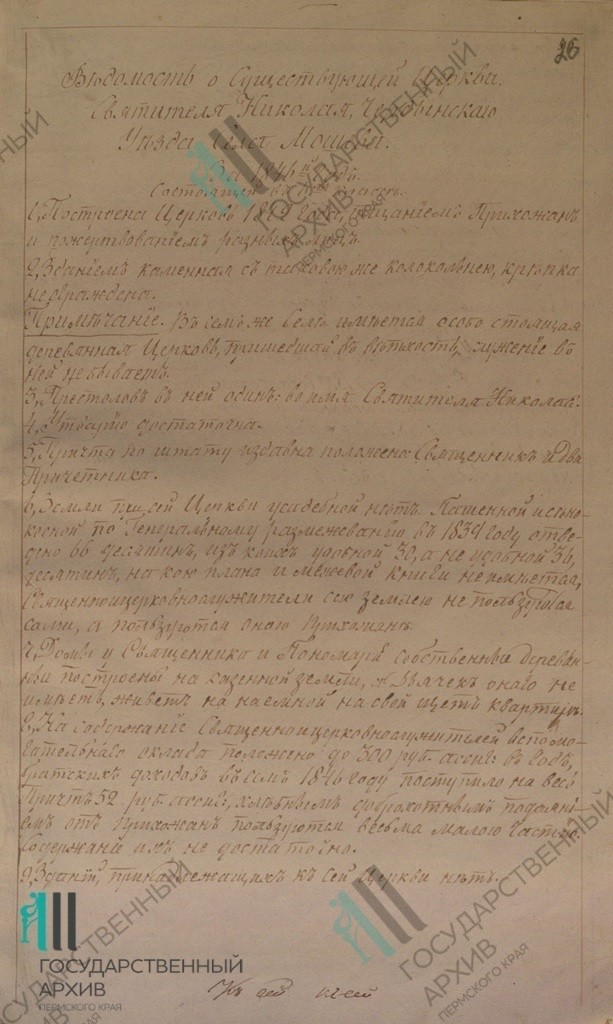 26
Вѣдомость о Существующей Церкви.
Святителя Николая, Чердынскаго
Уѣзда села Мошева.
За 1846й годъ.
Состоящей въ
1, Построена Церковь году, тщаніемъ Прихожанъ
и пожертвованіемъ разныхъ лицъ.
2, Зданіемъ каменная съ таковою же колокольнею, крѣпка
не овраждена.
Примѣчаніе. Въ семъ же Селѣ имѣется особо стоящая
деревянная Церковь, пришедшая въ вѣтхость, служеніе въ
ней не бываетъ.
3, Престоловъ въ ней одинъ: во имя Святителя Николая.
4, Утварію достаточна.
5, Причта по штату издавна положено Священникъ и два
Причетника.
6, Земли при сей Церкви усадебной нѣтъ. Пашенной и сѣно-
косной по Генеральному размежеванію въ 1834 Году отве-
дено 66 десятинъ, изъ коихъ удобной 30, а не удобной 36,
десятинъ, на кою плана и межевой книги не имѣется,
Священноицерковнослужители сею землею не пользуются
сами, а пользуются оною Прихожанѣ.
7, Домы у Священника и Пономаря собственные деревян-
ные построены на казенной земли, а Дьячекъ онаго не
имѣетъ, живетъ на наемной на свой щетъ квартирѣ.
8, На содержаніе Священноицерковнослужителей вспомо-
гательнаго оклада положено до 300 руб. ассиг: въ годъ,
братскихъ доходовъ въ семъ 1846 Году поступило на весь
Причтъ 52 руб. ассиг:, хлѣбнымъ доброхотнымъ подаяні-
емъ отъ Прихожанъ пользуются весьма малою частію.
Содержаніе ихъ не достаточно.
9, Зданій, принадлежащихъ къ сей Церкви нѣтъ.
Къ сей
ГОСУДАРСТВЕННЫЙ
АРХИВ
ПЕРМСКОГО КРАЯ
ГОСУДАРСТВЕННЫЙ
АРХИВ
ПЕРМСКОГО КРАЯ
ГОСУДАРСТВЕННЫЙ
АРХИВ
ПЕРМСКОГО КРАЯ